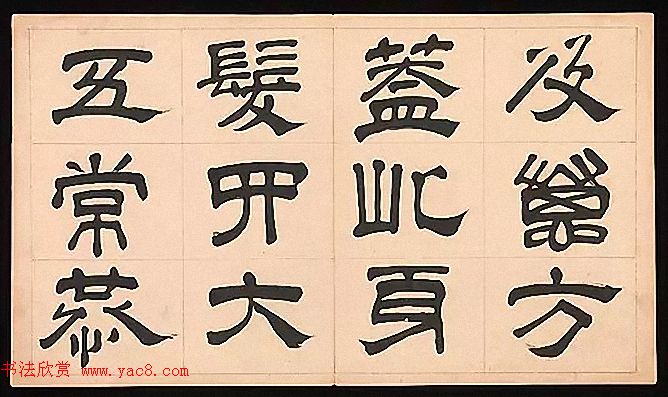 及萬方
蓋此身
髮四大
五常恭
书法欣赏 www.yac8.com